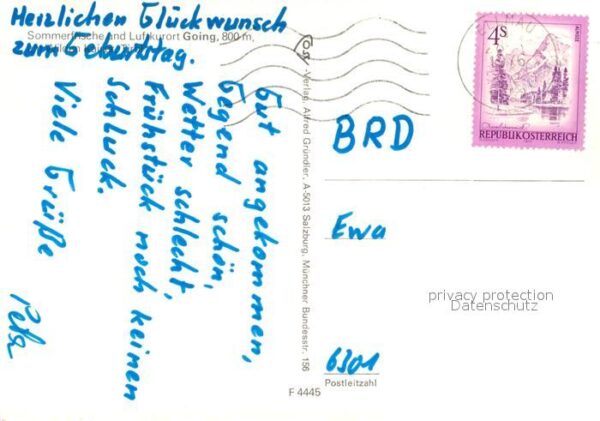 Herzlichen Glückwunsch
zum Geburtstag.
Sommerfrische und Luftkurort Going, 800 m,
Gut angekommen,
Gegend schön,
Wetter schlecht,
Frühstück noch keinen
Schluck.
Viele Grüße
Peter
Verlag Alfred Gründler, A-5013 Salzburg, Münchner Bundesstr. 156
F 4445
4S
REPUBLIK ÖSTERREICH
BRD
Ewa
privacy protection
Datenschutz
6301
Postleitzahl